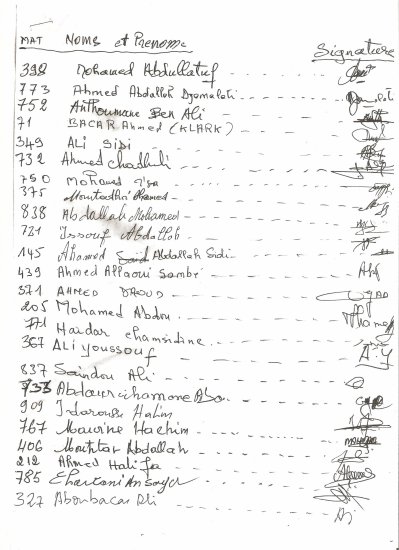 MAT Noms et Prenoms Signature
398 Mohamed Abdullatuf
773 Ahmed Abdallah Djamaleti
752 Anthoumane Ben Ali
71 BACAR Ahmed (KLARK)
349 ALI SIDI
732 Ahmed Chadhuli
750 Mohamed
375 Mouatadhi Ahamed
838 Abdallah Mohamed
721 Issouf Abdallah
145 Ahamed Said Abdallah Sidi
439 Ahmed Allaoui Sambi
371 AHMED DAOUD
205 Mohamed Abdou
771 Haidar Chamsidine
367 ALi youssouf
837 Saindou Ali
933
909 Idaroussi Halim
767 Maurine Hachim
406 Mouhtar Abdallah
212 Ahmed Halifa
785
327 Aboubacar Ali